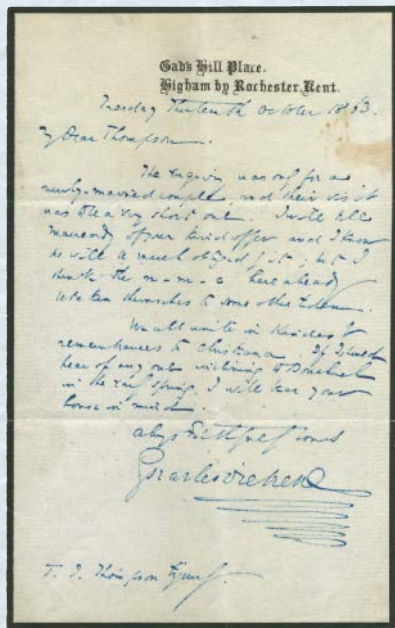 Gad's Hill Place.
Higham by Rochester, Kent.
Tuesday Thirteenth October 1863.
My Dear Thompson.
The enquiry was only for a
newly-married couple, and their visit
was to be a very short one. I will tell
of your kind offer and I know
he will be much obliged for it; but I
think the n-m-c have already
themselves to some other Eden.
We all unite in kindest
remembrances to Christiana. If I should
hear of any one wishing to
in the early Spring, I will bear your
house in mind.
always Faithfully Yours
Charles Dickens
T. J. Thompson Esquire.